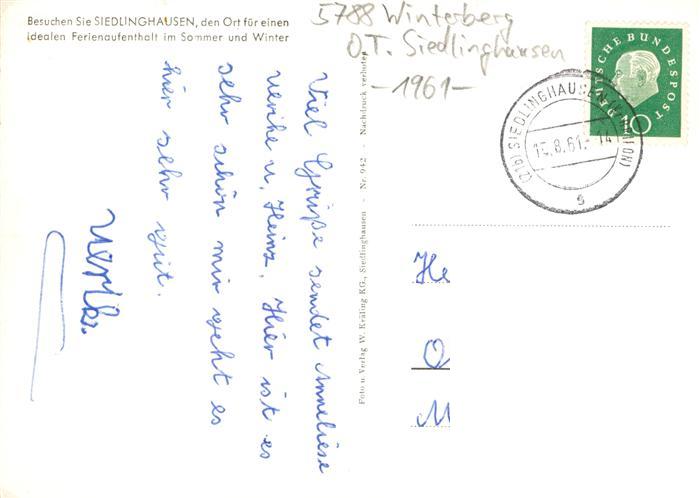 Besuchen Sie SIEDLINGHAUSEN, den Ort für einen
idealen Ferienaufenthalt im Sommer und Winter
5788 Winterberg
O.T. Siedlinghausen
-1961-
DEUTSCHE BUNDESPOST
10
(21b) SIEDLINGHAUSEN
15.8.61.-14
s
Viel Grüße sendet Anneliese
u. Heinz. Hier ist es
sehr schön mir geht es
hier sehr gut.
Foto u. Verlag W. Kräling KG., Siedlinghausen - Nr. 942 Nachdruck verboten
He
O
M